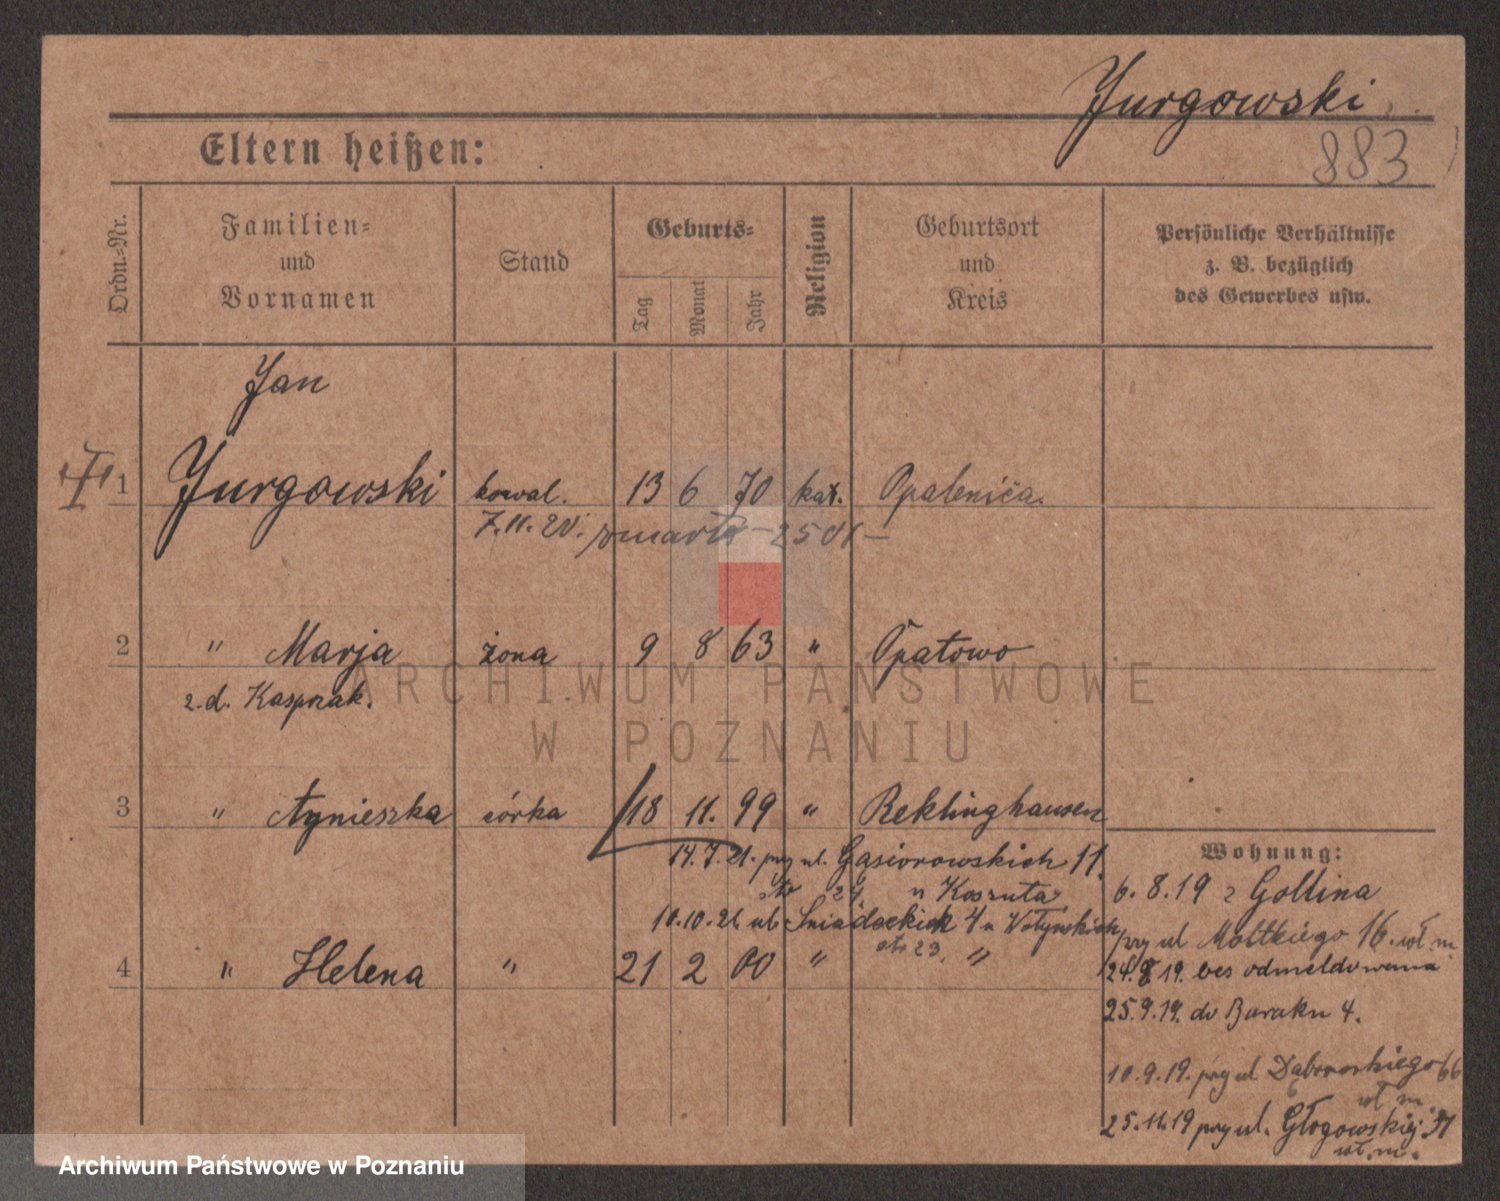 Jurgowski
883
Eltern heißen:
Ordn.-Nr.
Familien-
und
Vornamen
Stand
Geburts-
Tag
Monat
Jahr
Religion
Geburtsort
und
Kreis
Persönliche Verhältnisse
z. B. bezüglich
des Gewerbes usw.
Jan
1 Jurgowski kowal. 13 6 70 kat. Opalenica.
7.11.20. zmarła
2 " Marja żona 9 8 63 " Opatowo
z. d. Kasprzak.
3 " Agnieszka córka 18 11. 99 " Reklinghausen
14.7.21. przy ul. Gąsiorowskich 11.
24 u Koszuta
10.10.21 ul. Śniadeckich 4 u Wołyńskich
23.
4 " Helena " 21 2 00 " "
Wohnung:
6.8.19 z Gollina
przy ul Moltkiego 16. wł. m
24.8.19. bes odmeldowania
25.9.19. do Baraku 4.
10.9.19. przy ul Dąbrowskiego 66
wł m.
25.11.19 przy ul. Głogowskiej
wł. m.
ARCHIWUM PAŃSTWOWE
W POZNANIU
Archiwum Państwowe w Poznaniu